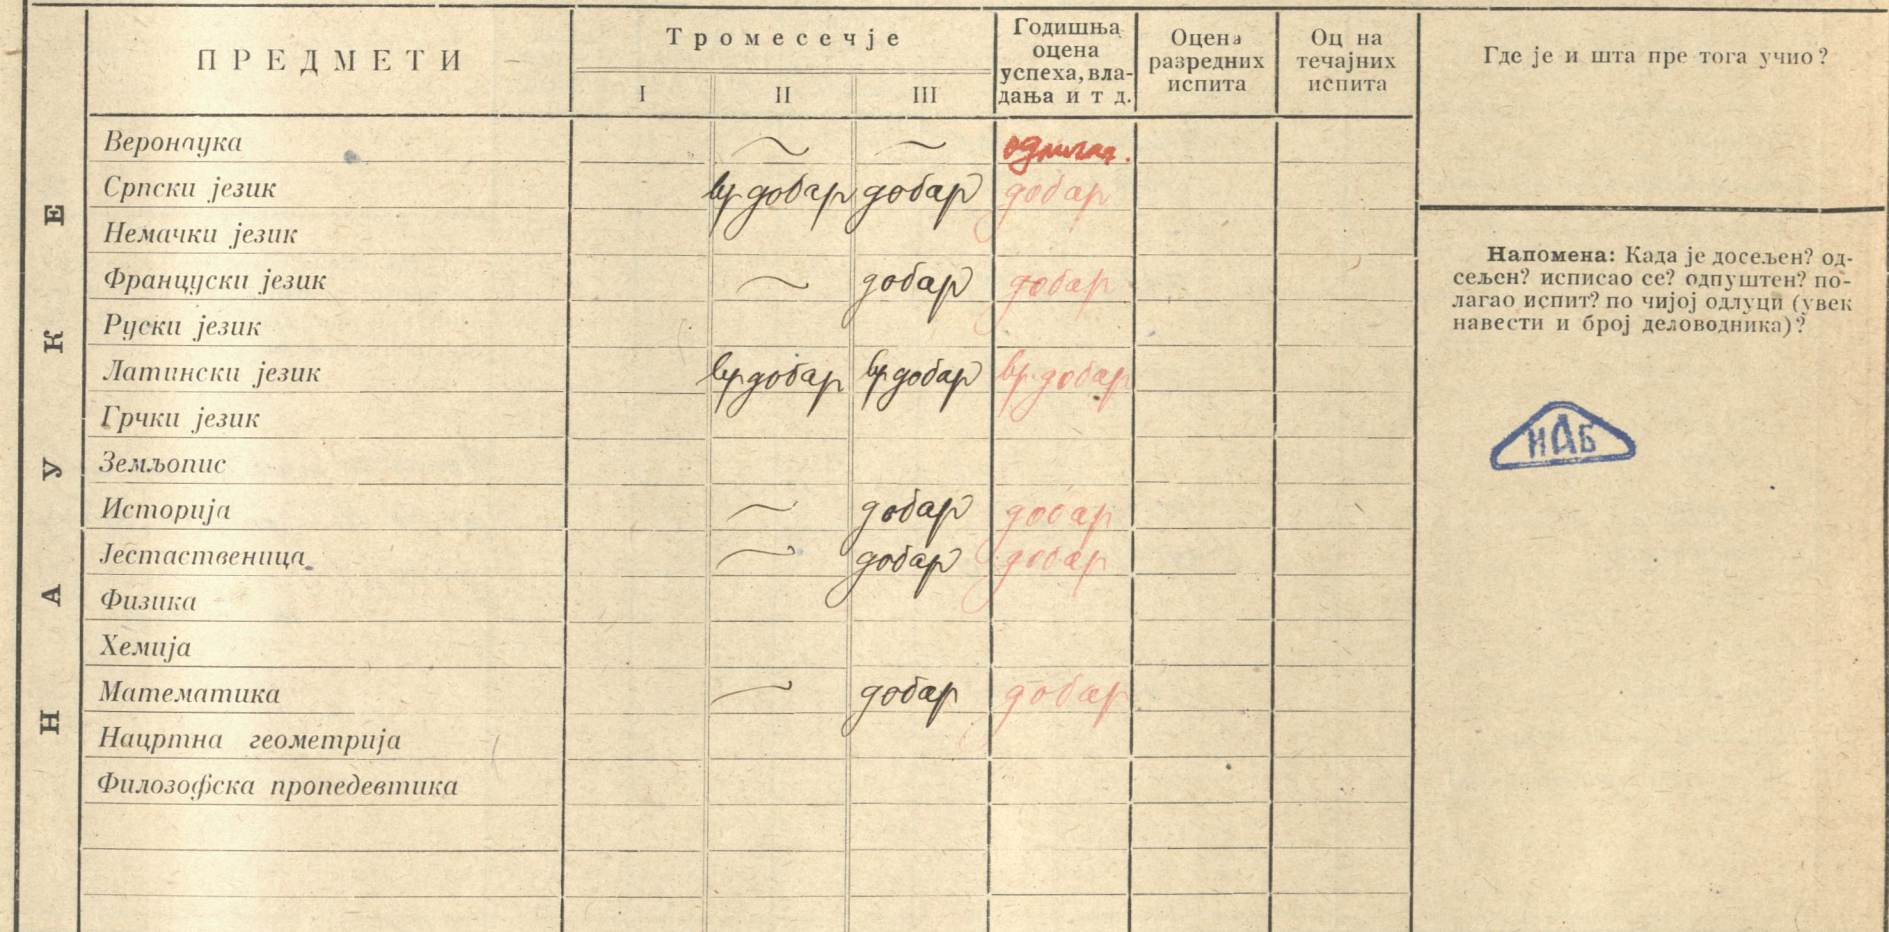 НАУКЕ
ПРЕДМЕТИ
Тромесечје
I II III
Годишња
оцена
успеха, вла-
дања и т д.
Оцена
разредних
испита
Оц на
течајних
испита
Где је и шта пре тога учио?
Веронаука ~ ~
Српски језик вр добар добар добар
Немачки језик
Француски језик ~ добар добар
Руски језик
Латински језик вр добар вр добар вр. добар
Грчки језик
Земљопис
Историја ~ добар добар
Јестаственица ~ добар добар
Физика
Хемија
Математика ~ добар добар
Нацртна геометрија
Филозофска пропедевтика
Напомена: Када је досељен? од-
сељен? исписао се? одпуштен? по-
лагао испит? по чијој одлуци (увек
навести и број деловодника)?
ИАБ